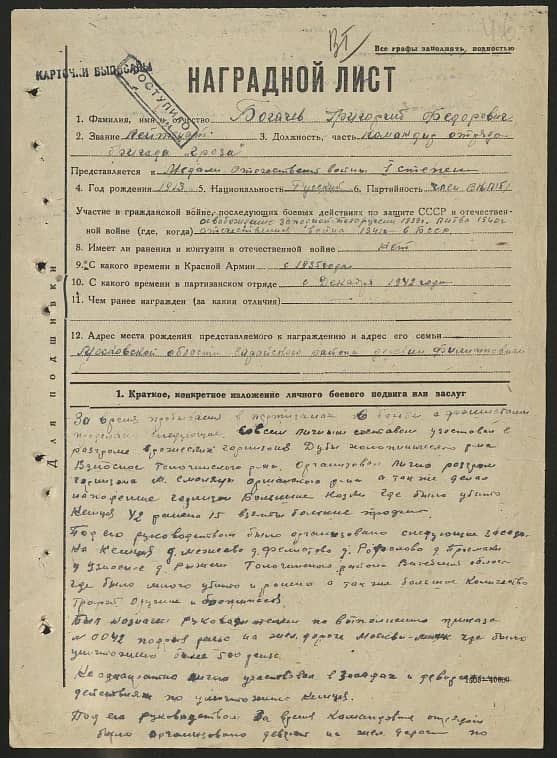 Все графы заполнять полностью
КАРТОЧКИ ВЫПИСАНЫ
ПОСТУПИЛО
НАГРАДНОЙ ЛИСТ
1. Фамилия, имя и отчество Богачев Григорий Федорович
2. Звание Лейтенант 3. Должность, часть Командир отряда
бригада "Гроза"
Представляется к Медали Отечественной войны I степени
4. Год рождения 1913 5. Национальность Русский 6. Партийность член ВКП(б)
Участие в гражданской войне, последующих боевых действиях по защите СССР и отечествен-
освобождение западной 1939г. Литва 1940г
ной войне (где, когда) отечественная война 1941г в БССР
8. Имеет ли ранения и контузии в отечественной войне нет
9. С какого времени в Красной Армии с 1935 года
10. С какого времени в партизанском отряде с Декабря 1942 года
11. Чем ранее награжден (за какия отличия)
12. Адрес места рождения представляемого к награждению и адрес его семьи
Московской области района деревни
Для подшивки
1. Краткое, конкретное изложение личного боевого подвига или заслуг
За время пребывания в партизанах в боях с фашистами
следующее совсем личным составом участвовал в
разгроме вражеских гарнизонов Дубы р-на
Взносное Толочинского р-на. Организовал лично разгром
гарнизона М. Смоляны оршанского р-на а так же делал
нападение гарнизон Большие где было убито
Немцев 42 ранено 15 взяты большие трофеи.
Под его руководством было организовано следующие засады
На Немцев д. Межево д. д. д.
д Узносное д. Рыжки Толочинского района Витебской области
где было много убито и ранено а так же большое количество
Трофей Оружие и боеприпасов
Был назначен руководителем по выполнению приказа
№ 0042 подрыв рельс на жел. дороге Москва-Минск где было
уничтожено более 500 рельс
Неоднократно лично участвовал в засадах и диверсион
действиях по уничтожению Немцев.
Под его руководством За время Командования отрядом
было организовано диверсий на жел. дороги по